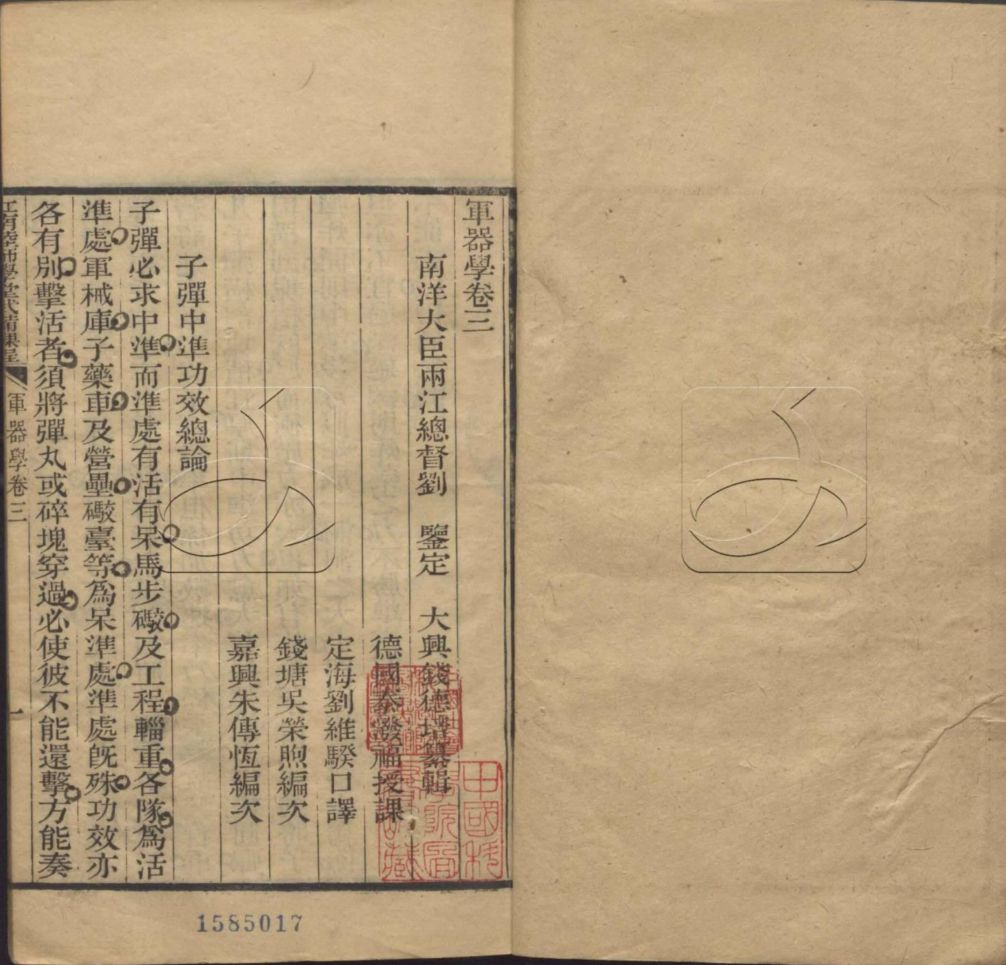 軍器學卷三
南洋大臣兩江總督劉 鑒定 大興錢德培纂輯
德國泰潑福授課
定海劉維騤口譯
錢塘吳榮煦編次
嘉興朱傳恆編次
子彈中準功效總論
子彈必求中準而準處有活有呆馬步礮及工程輜重各隊爲活
準處軍械庫子藥車及營壘礮臺等爲呆準處準處旣殊功效亦
各有別擊活者須將彈丸或碎塊穿過必使彼不能還擊方能奏
軍器學卷三
一
1585017